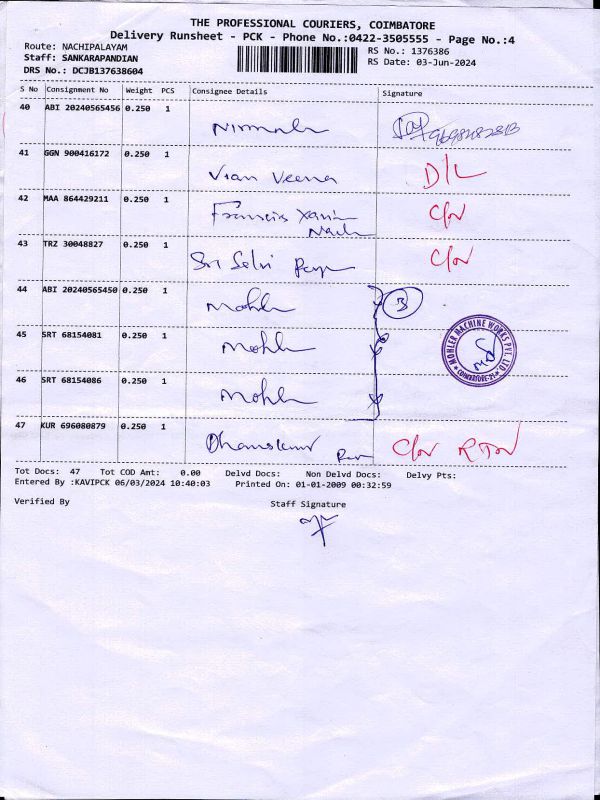 THE PROFESSIONAL COURIERS, COIMBATORE
Delivery Runsheet - PCK - Phone No.:0422-3505555 - Page No.:4
Route: NACHIPALAYAM
RS No.: 1376386
Staff: SANKARAPANDIAN
RS Date: 03-Jun-2024
DRS No.: DCJB137638604
S No Consignment No Weight PCS Consignee Details Signature
40 ABI 20240565456 0.250 1
Nirmala
41 GGN 900416172 0.250 1
Vian Veena D/L
42 MAA 864429211 0.250 1
Francis Xavier
43 TRZ 30048827 0.250 1
Sri Selvi
44 ABI 20240565450 0.250 1
Mohler 3
45 SRT 68154081 0.250 1
Mohler
MOHLER MACHINE WORKS PVT. LTD.
COIMBATORE-21
46 SRT 68154086 0.250 1
Mohler
47 KUR 696080879 0.250 1
Tot Docs: 47 Tot COD Amt: 0.00 Delvd Docs: Non Delvd Docs: Delvy Pts:
Entered By :KAVIPCK 06/03/2024 10:40:03 Printed On: 01-01-2009 00:32:59
Verified By Staff Signature